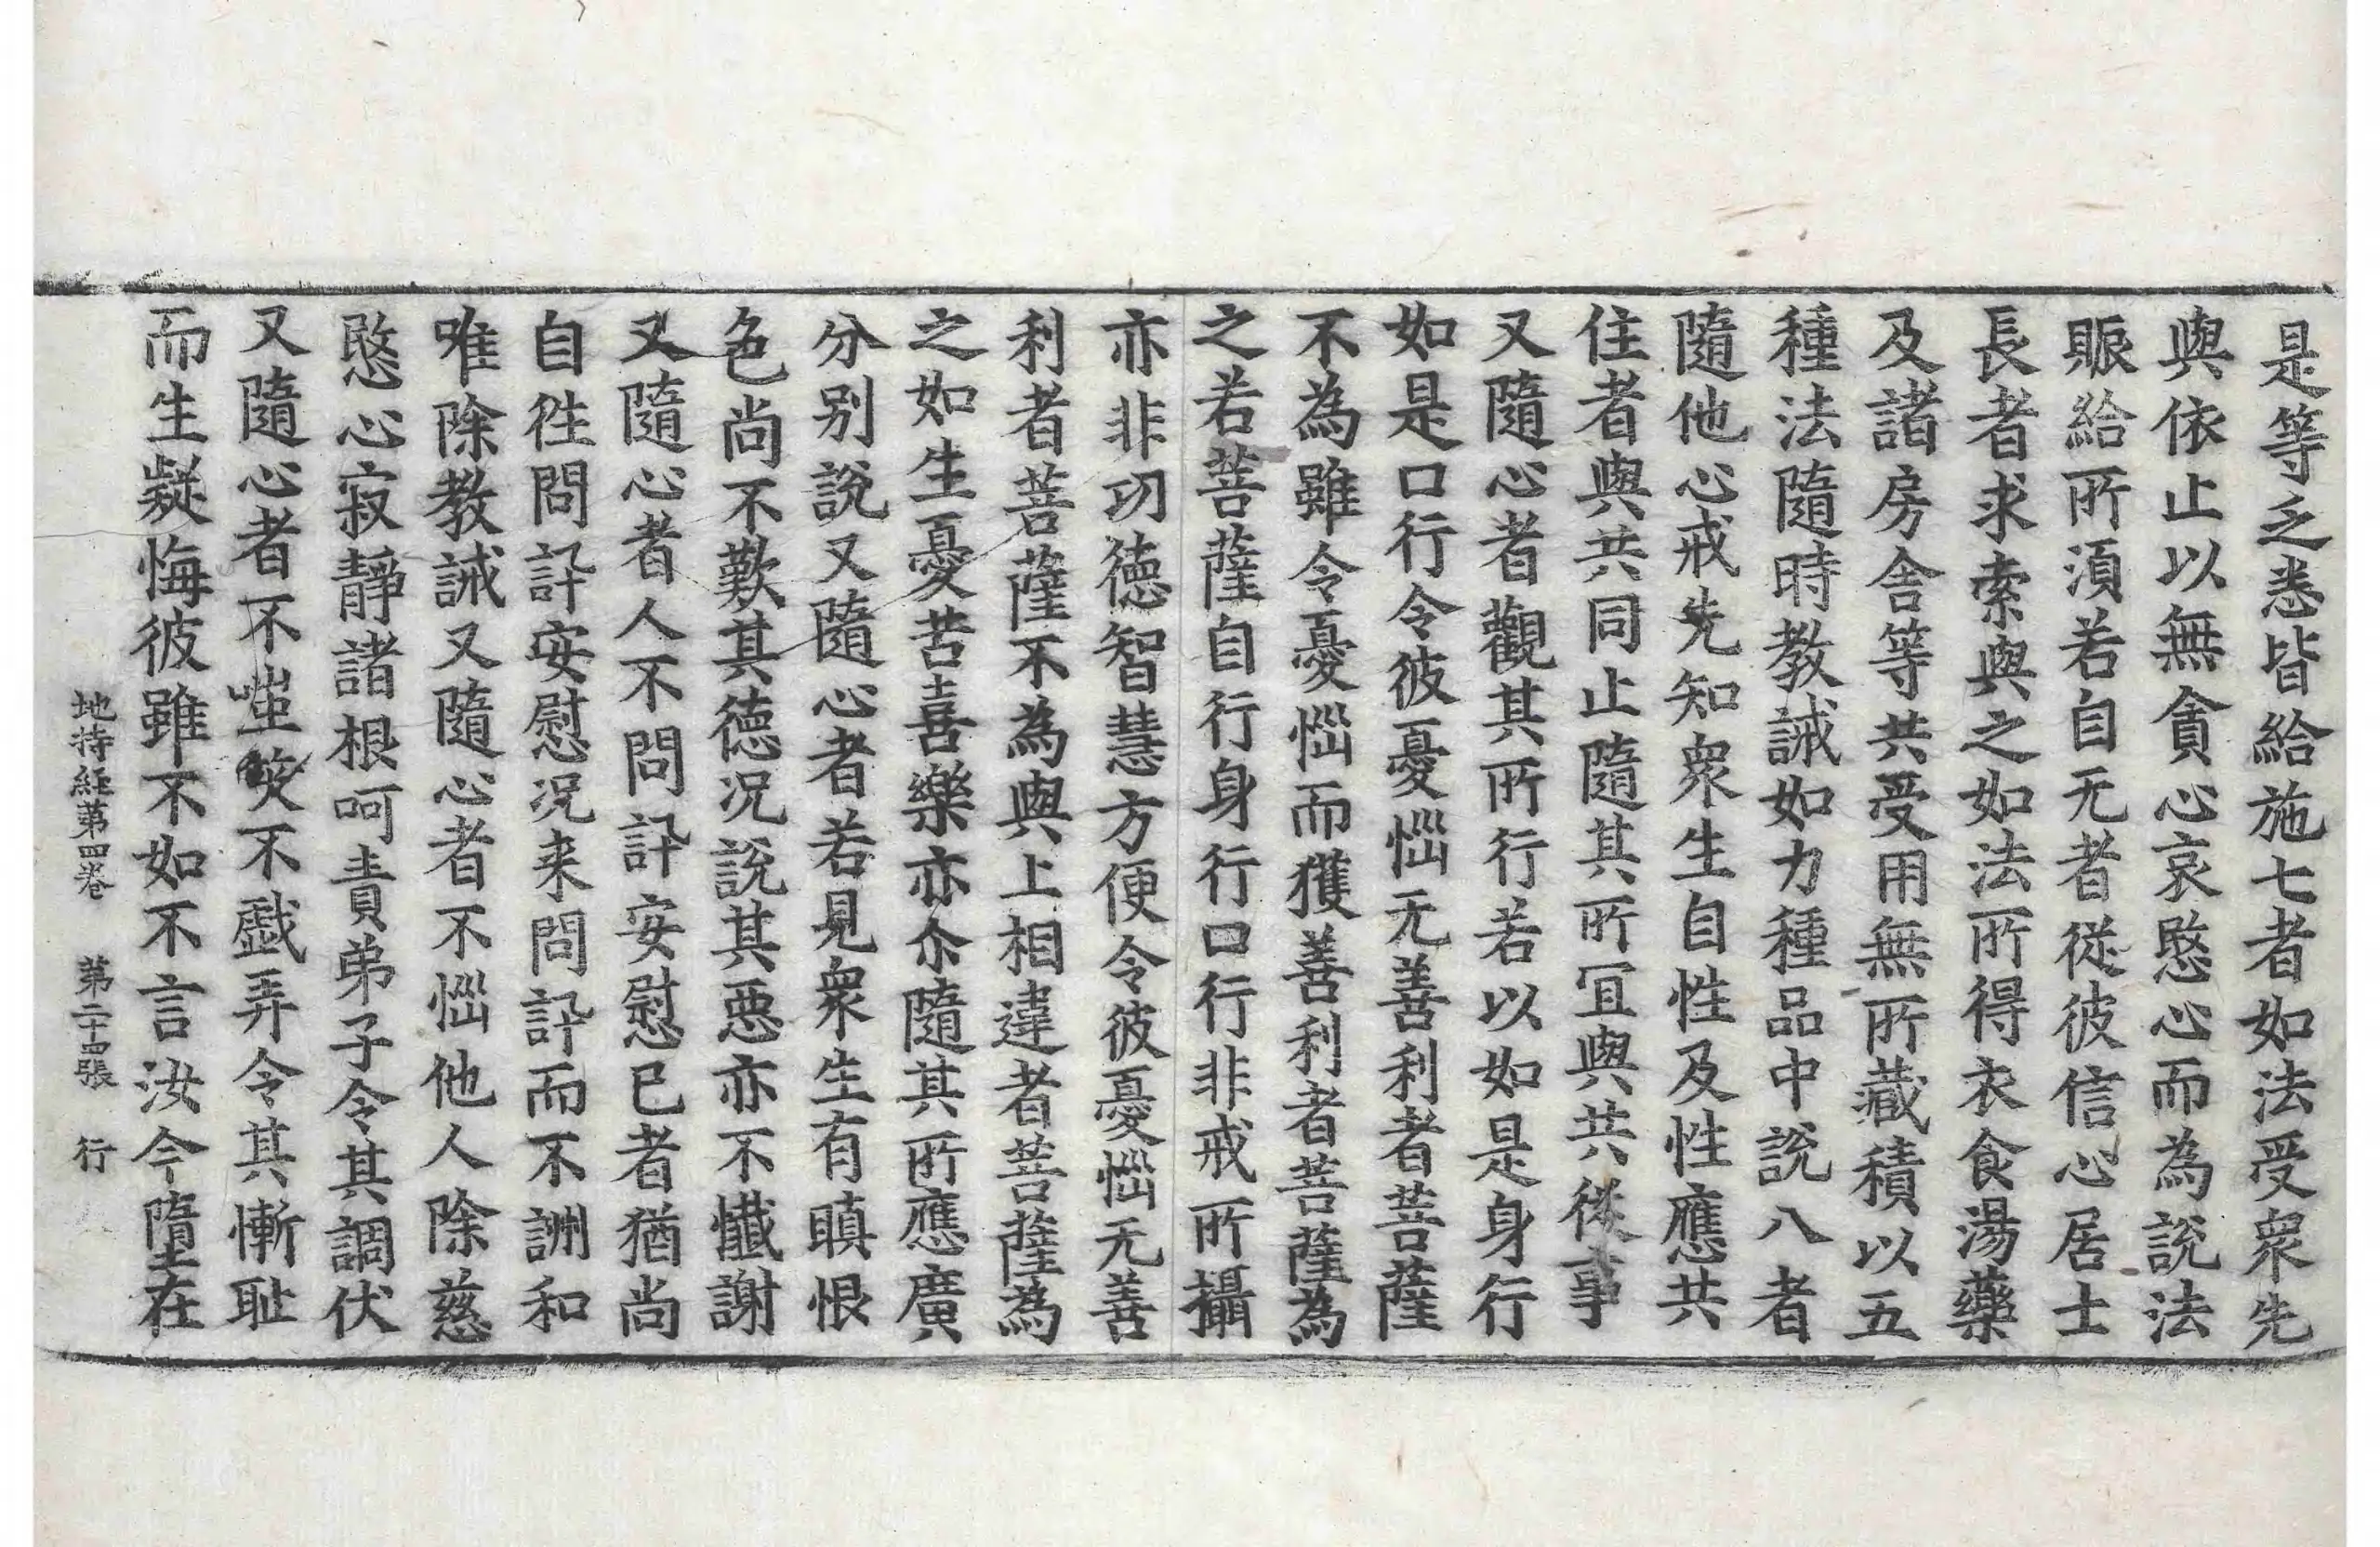 是等乏悉皆給施七者如法受衆先
與依止以無貪心哀愍心而為說法
賑給所須若自无者從彼信心居士
長者求索與之如法所得衣食湯藥
及諸房舍等共受用無所藏積以五
種法隨時教誡如力種品中說八者
隨他心戒先知衆生自性及性應共
住者與共同止隨其所冝與共從事
又隨心者觀其所行行若以如是身行
如是口行令彼憂惱无善利者菩薩
不為雖令憂惱而獲善利者菩薩為
之若菩薩自行身行口行非戒所攝
亦非功德智慧方便令彼憂惱无善
利者菩薩不為與上相違者菩薩為
之如生憂苦喜樂亦尒隨其所應廣
分别說又隨心者若見衆生有瞋恨
色尚不歎其德况說其惡亦不懺謝
又隨心者人不問訊安慰已者猶尚
自往問訊安慰况来問訊而不詶和
唯除教誡又隨心者不惱他人除慈
愍心寂靜諸根呵責弟子令其調伏
又隨心者不嗤笑不戲弄令其慚耻
而生疑悔彼雖不如不言汝今墮在
地持経第四卷 第二十四張 行